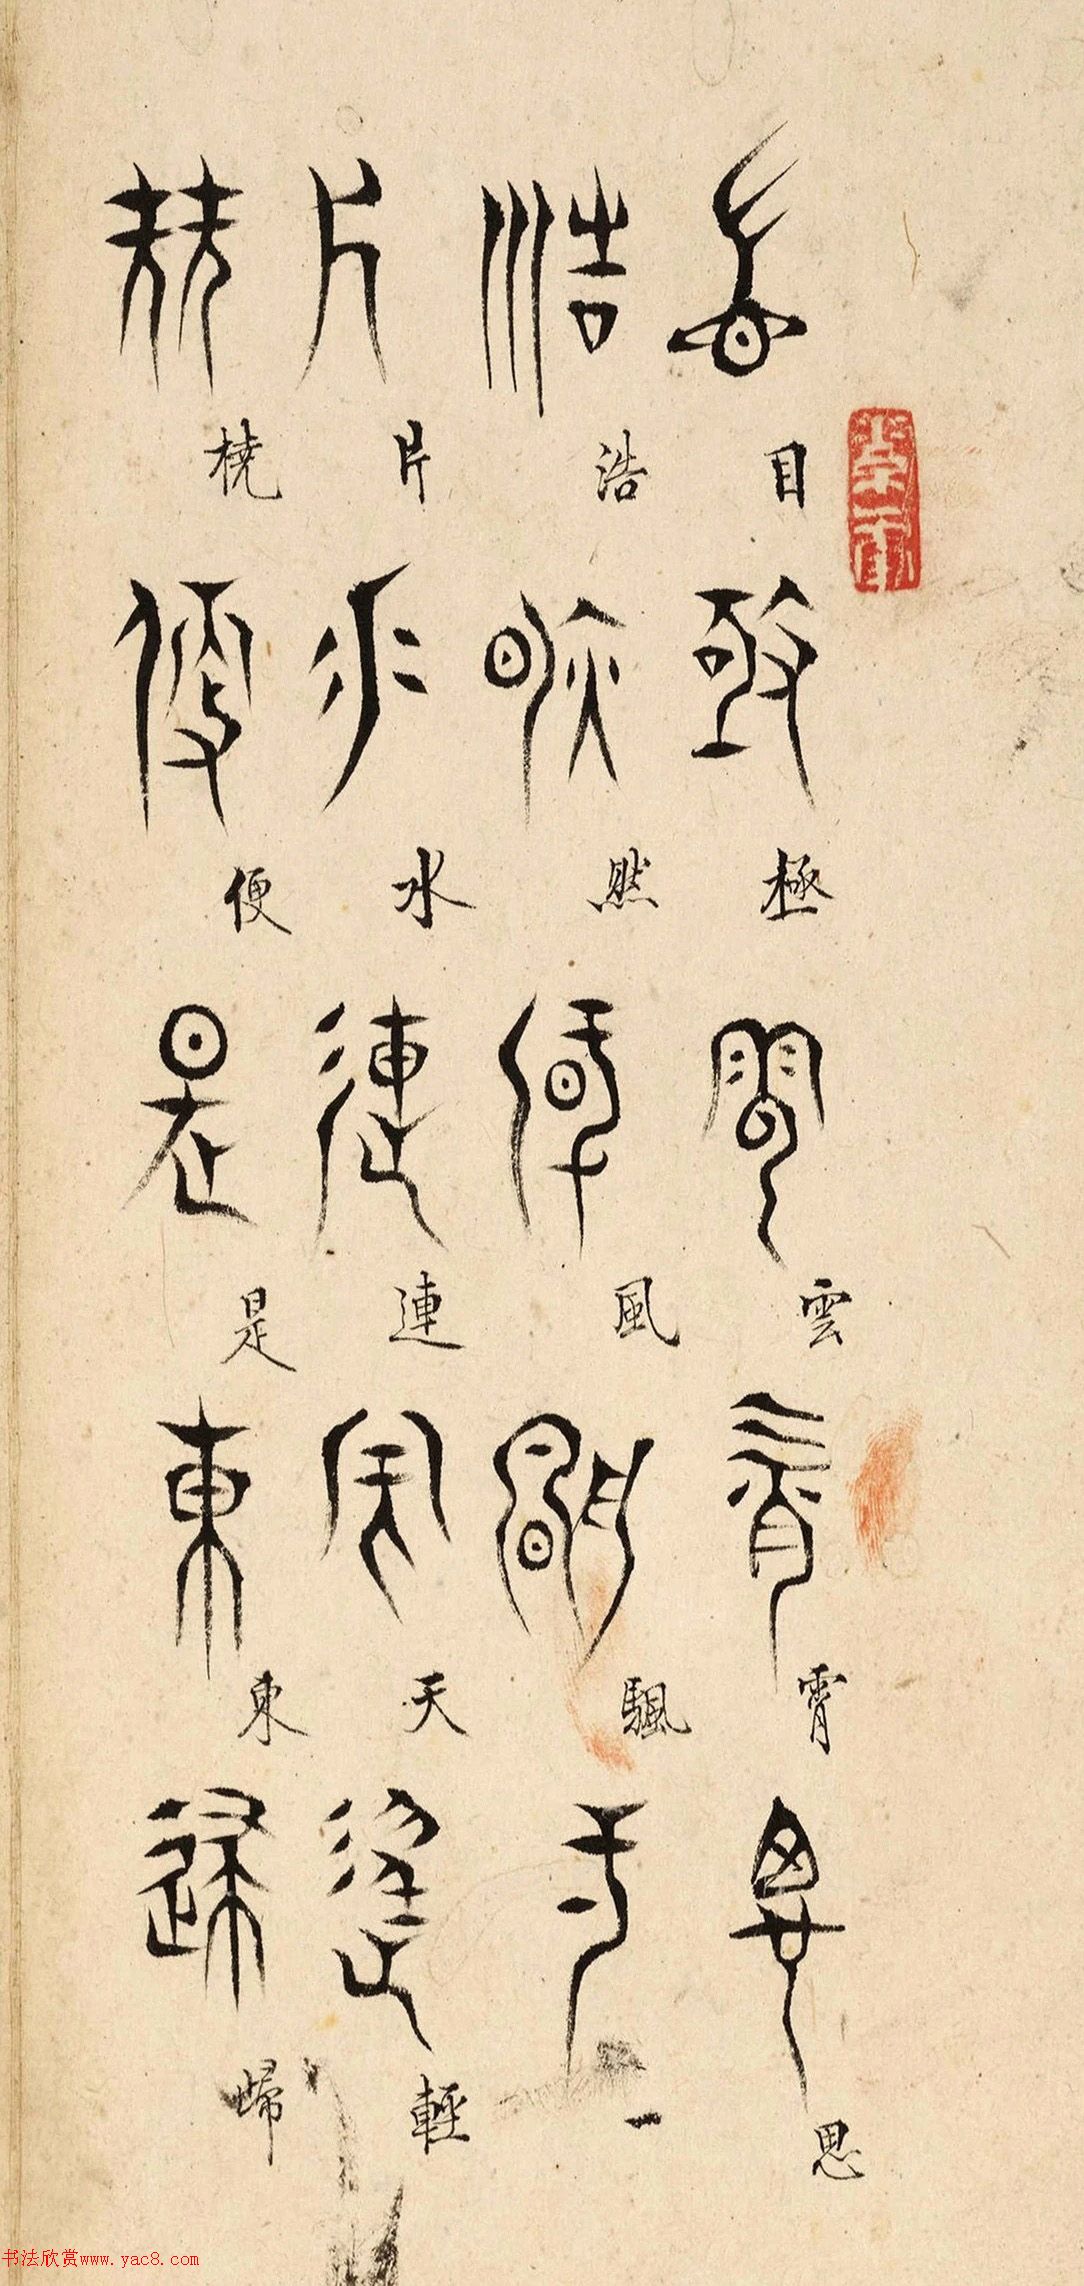 目極雲霄思
浩然風颿一
片水連天輕
橈便是東歸
书法欣赏www.yac8.com